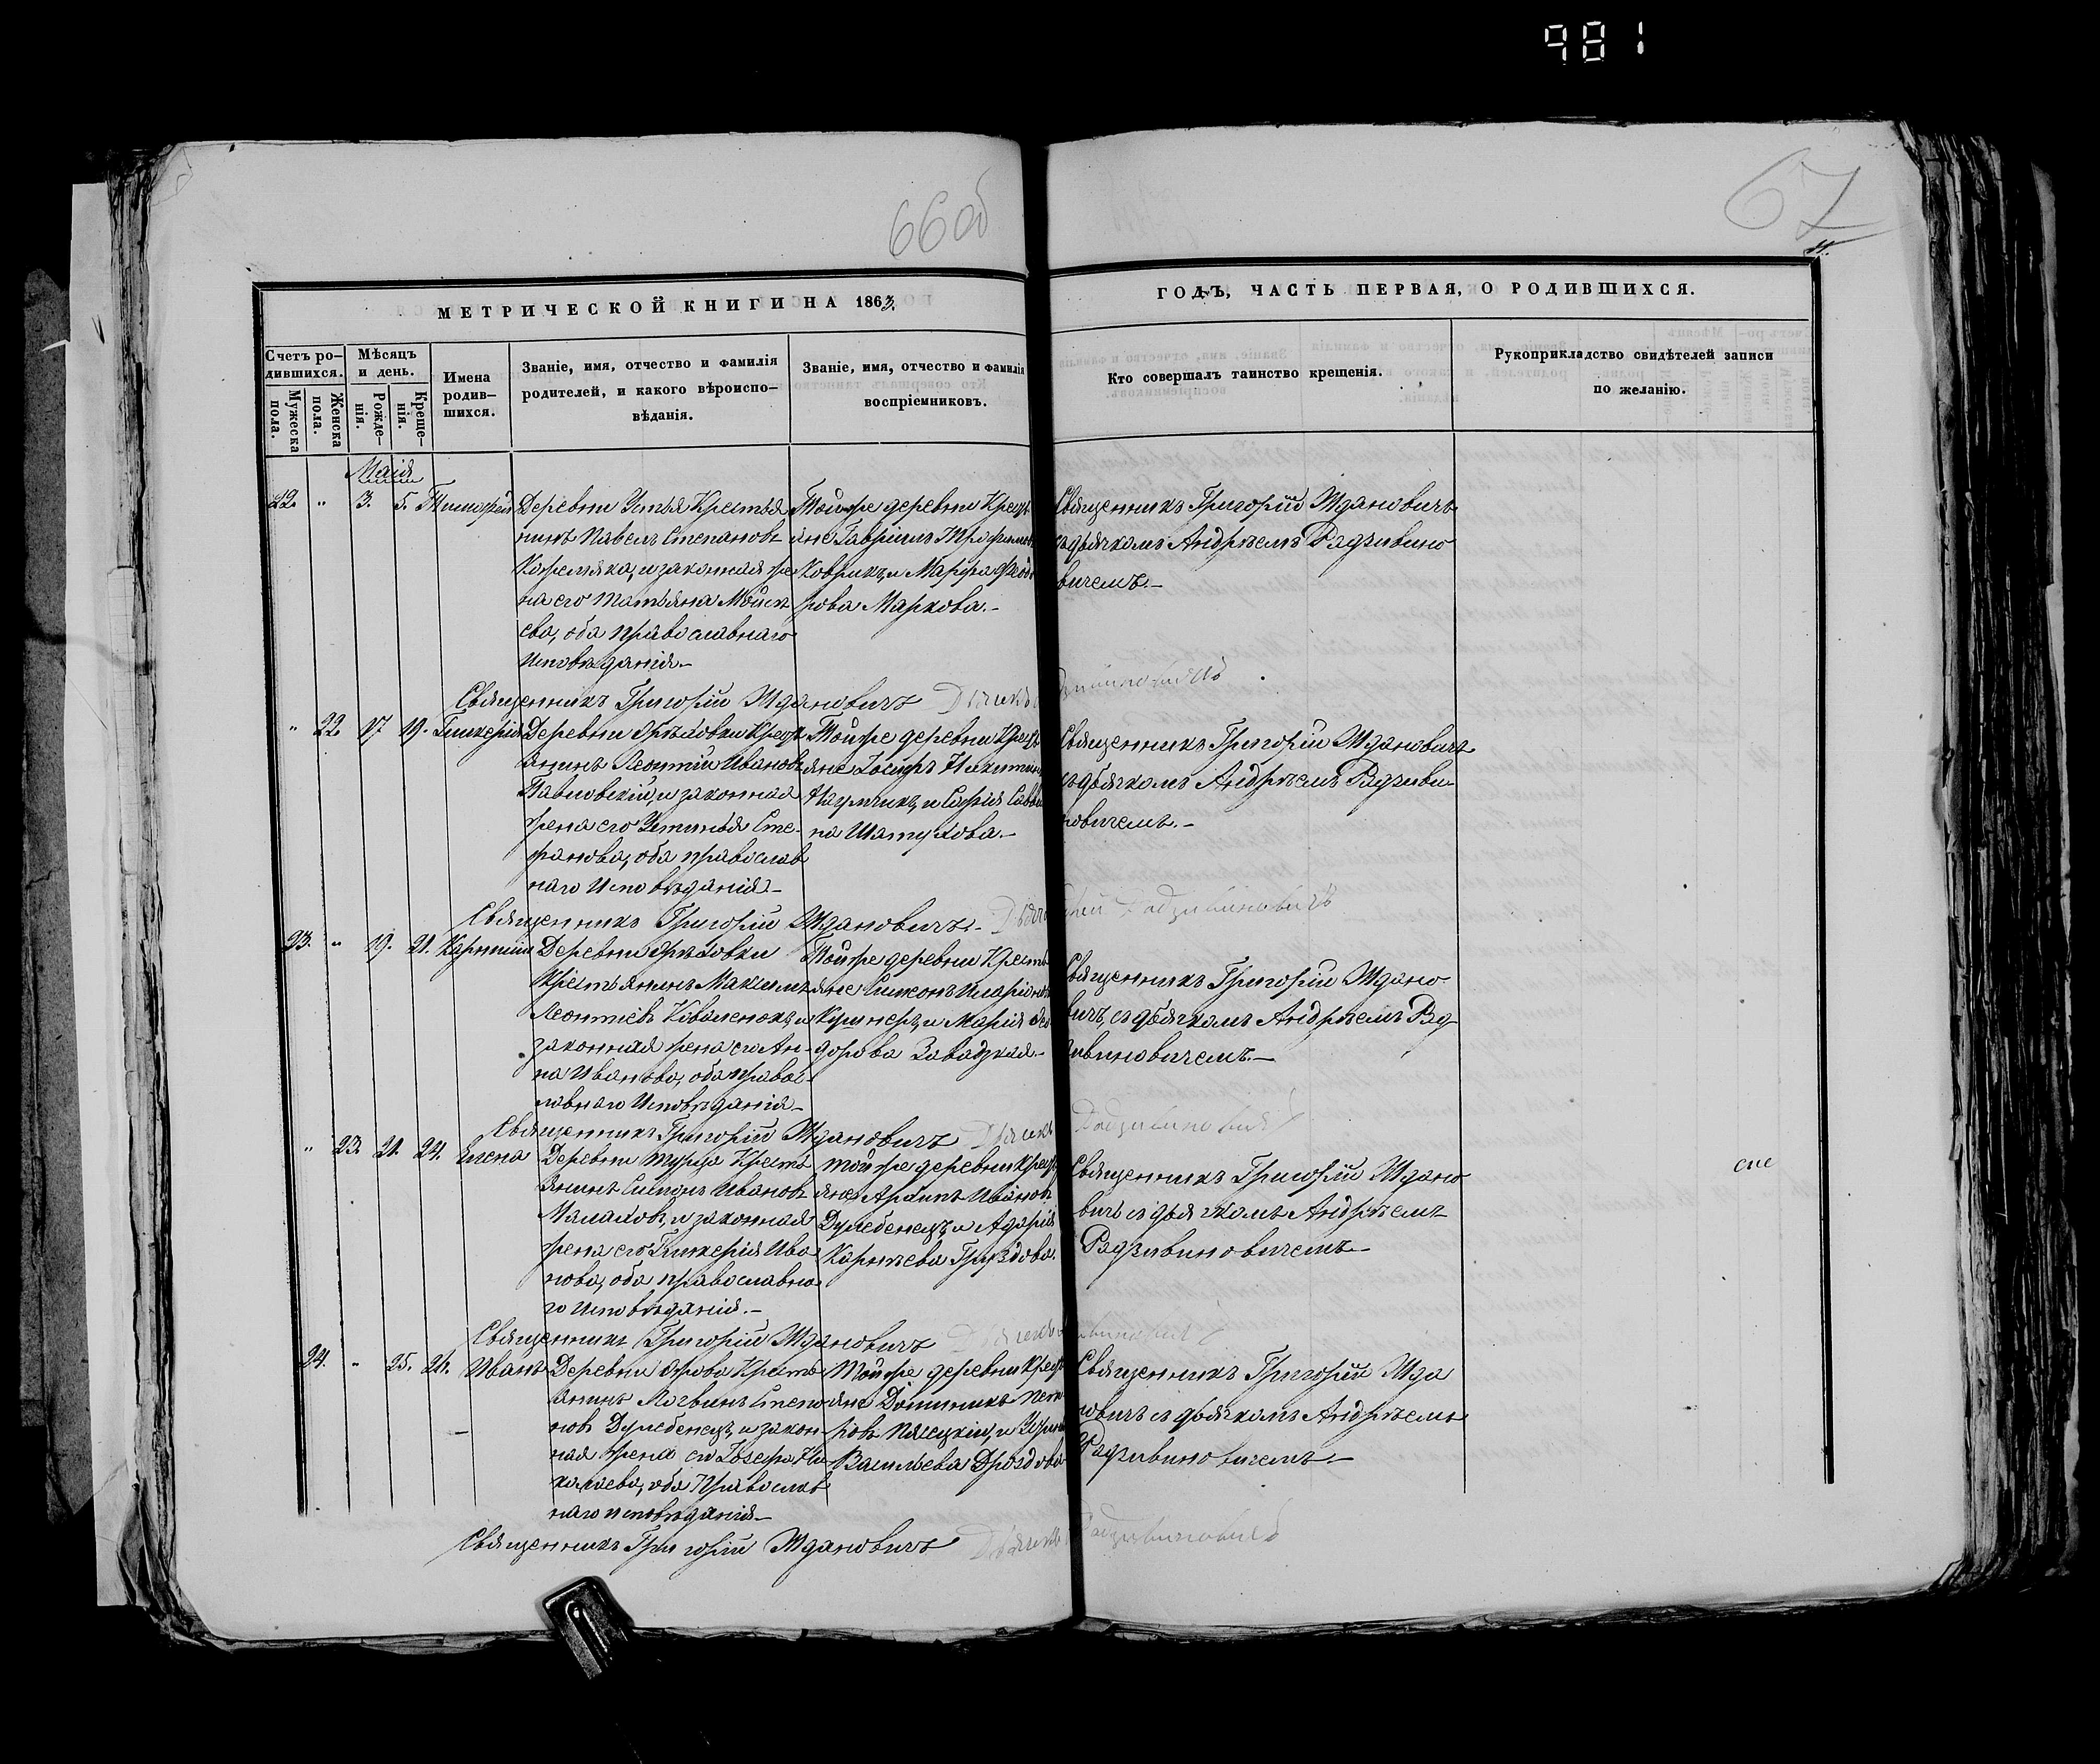 981
66об
67
МЕТРИЧЕСКОЙ КНИГИ НА 1863.
ГОДЪ, ЧАСТЬ ПЕРВАЯ, О РОДИВШИХСЯ.
Счетъ ро-
дившихся.
Мужеска
пола.
Женска
пола.
Мѣсяцъ
и день.
Рожде-
нія.
Креще-
нія.
Имена
родив-
шихся.
Званіе, имя, отчество и фамилія
родителей, и какого вѣроиспо-
вѣданія.
Званіе, имя, отчество и фамилія
воспріемниковъ.
Кто совершалъ таинство крещенія.
Рукоприкладство свидѣтелей записи
по желанію.
Маія
22. " 3. 5. Тимофей
Деревни Устья Крестья
нинъ Павелъ Степановъ
Каремяка, и законная же
на его Татьяна Моисе
ева, оба православнаго
Исповѣданія.-
Тойже деревни Крест
яне Гавріилъ Трофимовъ
Коврикъ, и Марфа Федо
рова Маркова.-
Священникъ Григорій Ждановичъ
съ дьячкомъ Андреемъ Радзивино
вичемъ.-
Священникъ Григорій Ждановичъ Дьячекъ
" 22. 17 19. Гликерія
Деревни Орѣховки Крест
янинъ Леонтій Ивановъ
Павловскій, и законная
жена его Устинья Сте-
фанова, оба православ
наго Исповѣданія.-
Тойже деревни Крест
яне Іосифъ
Наумчикъ, и Софія
на Шатухова.-
Священникъ Григорій Ждановичъ
съ дьячкомъ Андреемъ Радзиви-
новичемъ.-
Священникъ Григорій Ждановичъ.- Радзивиновичъ
23. " 19. 21. Карнилій
Деревни Орѣховки
Крестьянинъ Максимъ
Леонтіевъ Коваленокъ, и
законная жена его Ан-
на Иванова, оба правос-
лавнаго Исповѣданія-
Тойже деревни Кресть
яне Симеонъ Иларіоновъ
Кушнеръ, и Марія Фео-
дорова Завадзкая.-
Священникъ Григорій Ждано
вичъ, съ дьячкомъ Андреемъ Рад
зивиновичемъ.-
Священникъ Григорій Ждановичъ Дьячекъ Радзивиновичъ
" 23. 21. 24. Елена
Деревни Кресть
янинъ Симонъ Ивановъ
Малаховъ, и законная
жена его Гликерія Ива
нова, оба православна
го Исповѣданія.-
тойже деревни Крест
яне Архипъ Ивановъ
Дулебенецъ, и Адарія
Карнѣева Груздова.
Священникъ Григорій Ждано
вичъ съ дьячкомъ Андреемъ
Радзивиновичемъ.-
Священникъ Григорій Ждановичъ
24. " 25. 26. Иванъ
Деревни Кресть
янинъ Логвинъ Степа
новъ Дулебенецъ, и закон-
ная жена его Іозефа Ни
колаева, оба Православ
наго исповѣданія-
Тойже деревни Крест
яне Доминикъ Пет
ровъ Пясецкій, и
Васильева Дроздова
Священникъ Григорій Жда
новичъ съ дьячкомъ Андреемъ
Радзивиновичемъ.-
Священникъ Григорій Ждановичъ Дьячекъ Радзивиновичъ